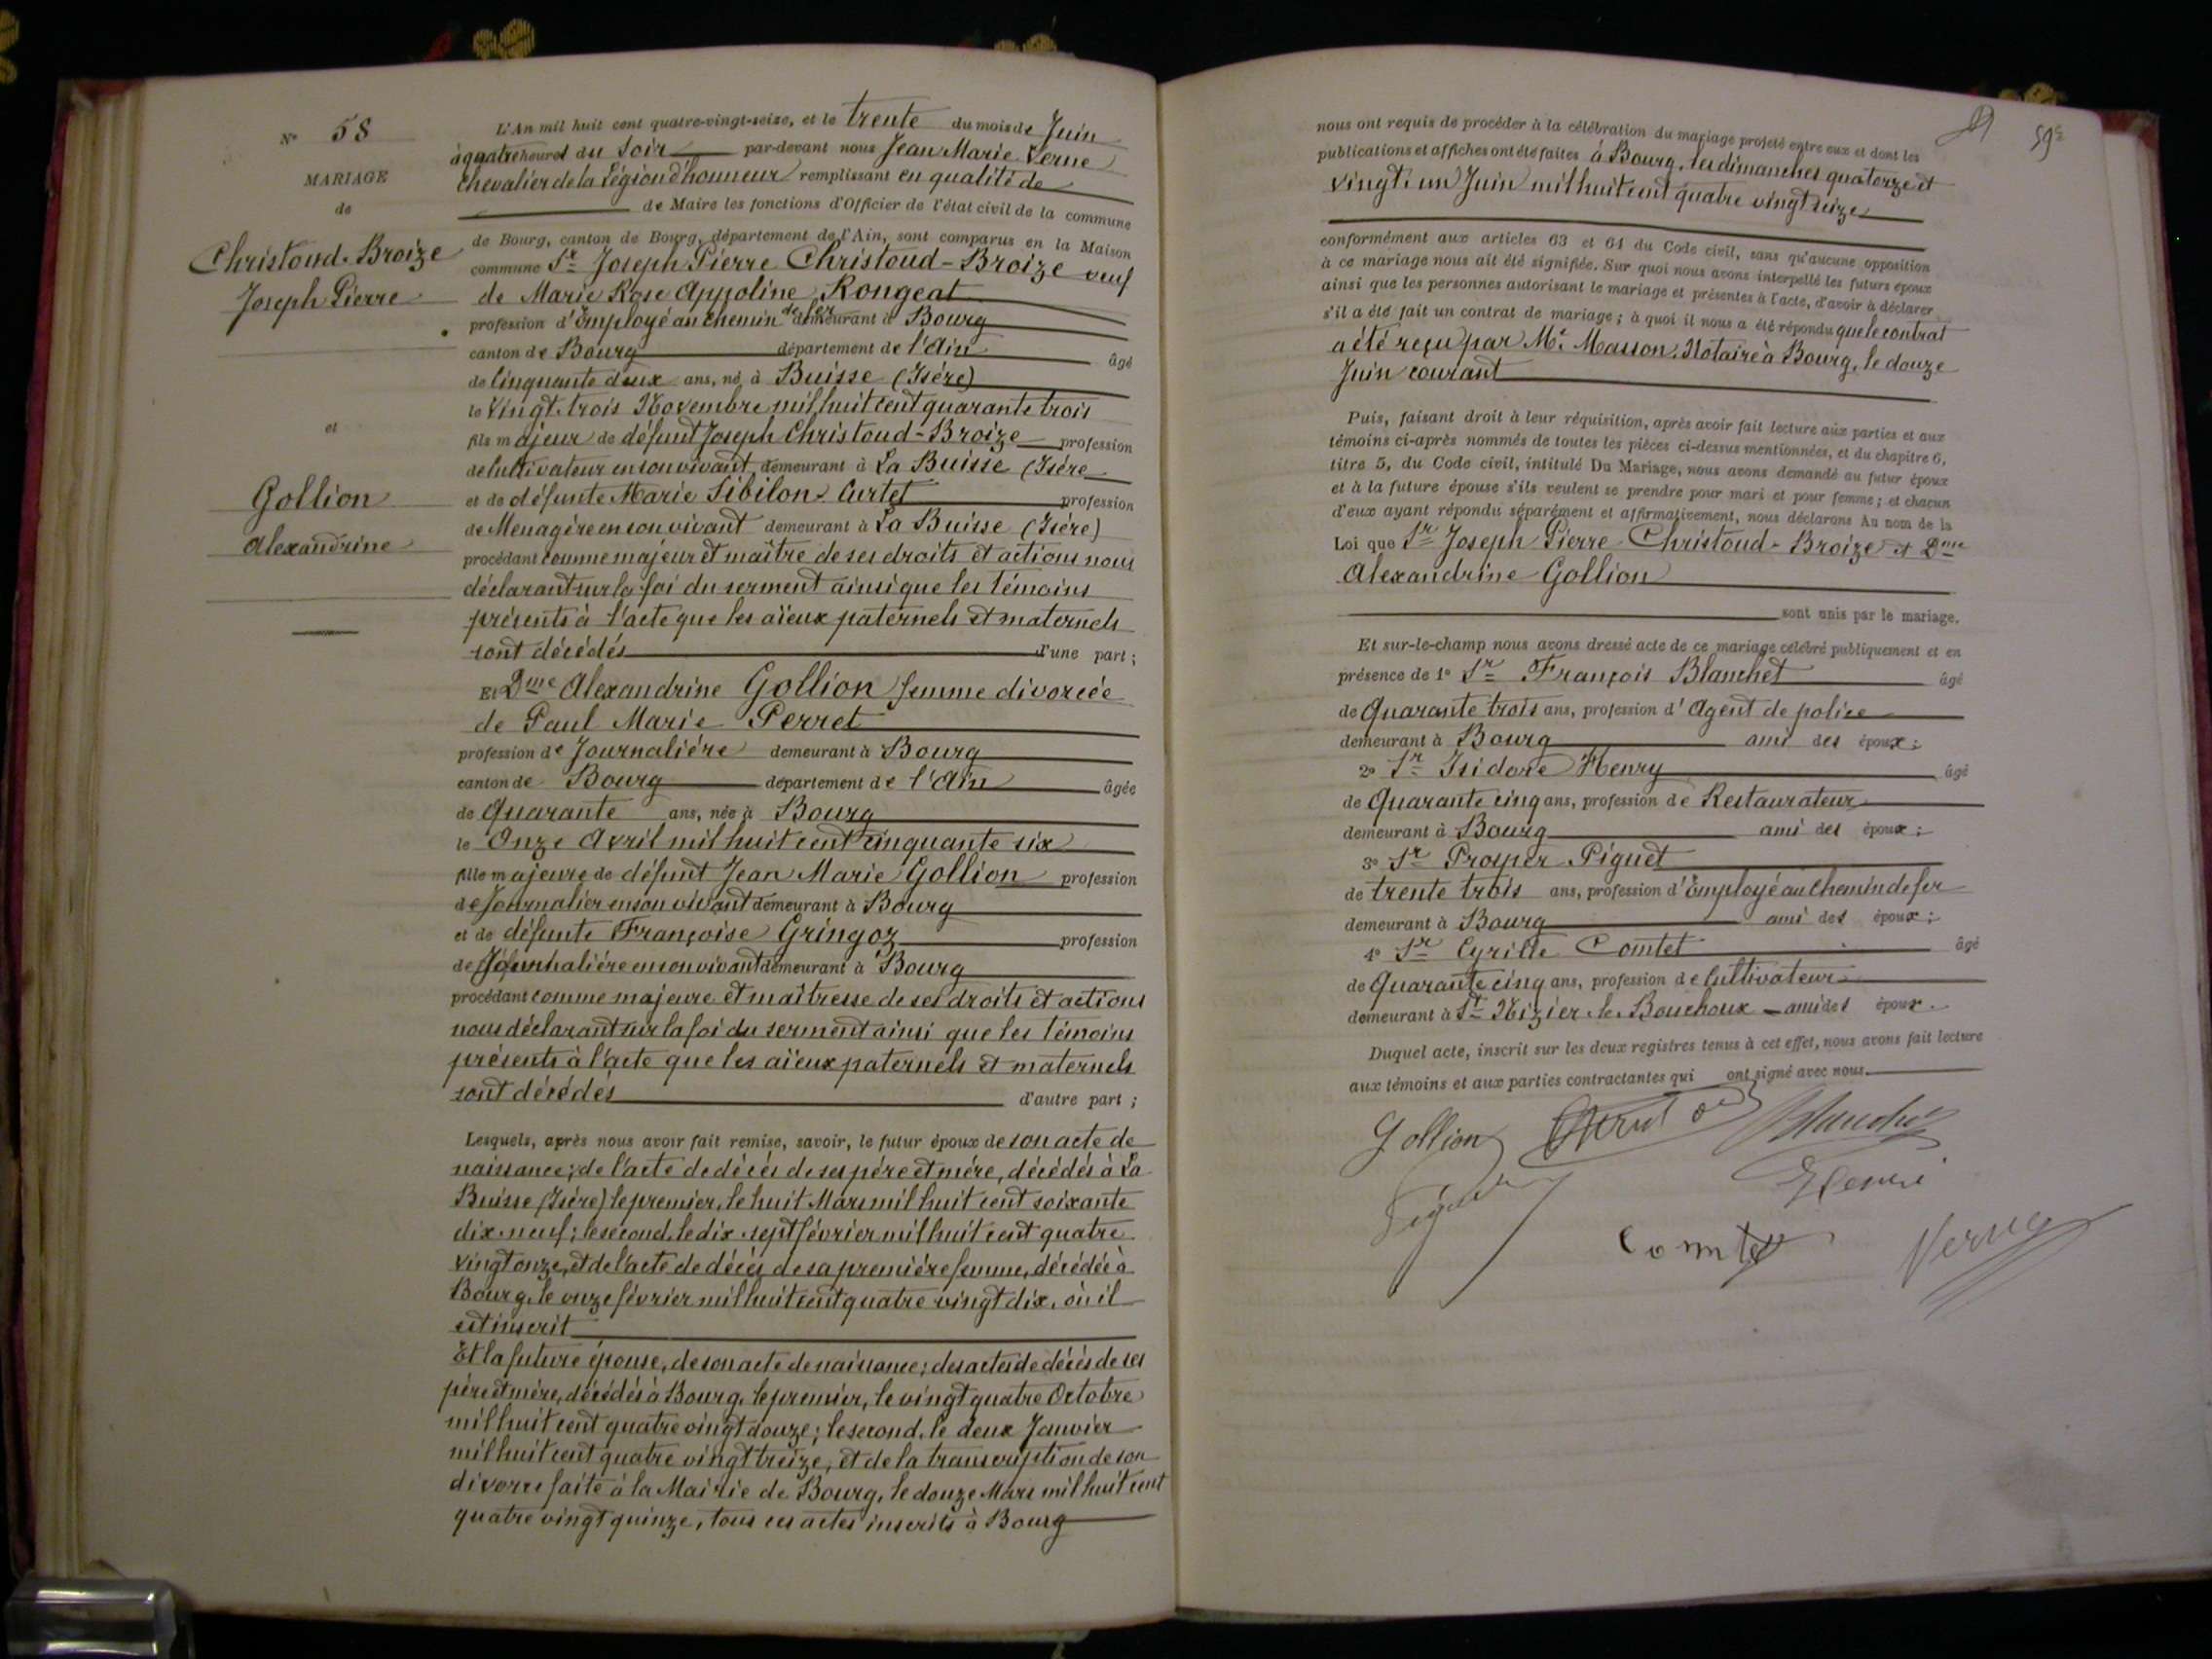 N° 58
MARIAGE
de
Christoud-Broize
Joseph Pierre
et
Gollion
Alexandrine
L'An mil huit cent quatre-vingt-seize, et le trente du mois de Juin
à quatre heures du soir par-devant nous Jean Marie Verne
Chevalier de la Légion d'honneur remplissant en qualité de
de Maire les fonctions d'Officier de l'état civil de la commune
de Bourg, canton de Bourg, département de l'Ain, sont comparus en la Maison
commune Sr Joseph Pierre Christoud-Broize veuf
de Marie Rose Appoline Rongeat
profession d'Employé au chemin de fer demeurant à Bourg
canton de Bourg département de l'Ain âgé
de Cinquante deux ans, né à Buisse (Isère)
le Vingt-trois Novembre mil huit cent quarante trois
fils majeur de défunt Joseph Christoud-Broize profession
de Cultivateur en son vivant demeurant à La Buisse (Isère
et de défunte Marie Sibilon-Curtet profession
de Menagère en son vivant demeurant à La Buisse (Isère)
procédant comme majeur et maître de ses droits et actions nous
déclarant sur la foi du serment ainsi que les témoins
présents à l'acte que les aïeux paternels et maternels
sont décédés d'une part ;
Et Dme Alexandrine Gollion femme divorcée
de Paul Marie Perret
profession de Journalière demeurant à Bourg
canton de Bourg département de l'Ain âgée
de Quarante ans, née à Bourg
le Onze Avril mil huit cent cinquante six
fille majeure de défunt Jean Marie Gollion profession
de Journalier en son vivant demeurant à Bourg
et de défunte Françoise Gringoz profession
de Journalière en son vivant demeurant à Bourg
procédant comme majeure et maîtresse de ses droits et actions
nous déclarant sur la foi du serment ainsi que les témoins
présents à l'acte que les aïeux paternels et maternels
sont décédés d'autre part ;
Lesquels, après nous avoir fait remise, savoir, le futur époux de son acte de
naissance; de l'acte de décès de ses père et mère, décédés à La
Buisse (Isère) le premier, le huit Mars mil huit cent soixante
dix-neuf; le second, le dix-sept février mil huit cent quatre
vingt onze, et de l'acte de décès de sa première femme, décédée à
Bourg, le onze février mil huit cent quatre vingt dix, où il
est inscrit
Et la future épouse, de son acte de naissance; des actes de décès de ses
père et mère, décédés à Bourg, le premier, le vingt quatre Octobre
mil huit cent quatre vingt douze; le second, le deux Janvier
mil huit cent quatre vingt treize, et de la transcription de son
divorce faite à la Mairie de Bourg, le douze Mars mil huit cent
quatre vingt quinze, tous ces actes inscrits à Bourg
59e
nous ont requis de procéder à la célébration du mariage projeté entre eux et dont les
publications et affiches ont été faites à Bourg, les dimanches quatorze et
vingt-un Juin mil huit cent quatre vingt seize
conformément aux articles 63 et 64 du Code civil, sans qu'aucune opposition
à ce mariage nous ait été signifiée. Sur quoi nous avons interpellé les futurs époux
ainsi que les personnes autorisant le mariage et présentes à l'acte, d'avoir à déclarer
s'il a été fait un contrat de mariage ; à quoi il nous a été répondu que le contrat
a été reçu par Me Masson, Notaire à Bourg, le douze
Juin courant
Puis, faisant droit à leur réquisition, après avoir fait lecture aux parties et aux
témoins ci-après nommés de toutes les pièces ci-dessus mentionnées, et du chapitre 6,
titre 5, du Code civil, intitulé Du Mariage, nous avons demandé au futur époux
et à la future épouse s'ils veulent se prendre pour mari et pour femme ; et chacun
d'eux ayant répondu séparément et affirmativement, nous déclarons Au nom de la
Loi que Sr Joseph Pierre Christoud-Broize et Dme
Alexandrine Gollion
sont unis par le mariage.
Et sur-le-champ nous avons dressé acte de ce mariage célébré publiquement et en
présence de 1° Sr François Blanchet âgé
de Quarante trois ans, profession d'Agent de police
demeurant à Bourg ami des époux ;
2° Sr Isidore Henry âgé
de Quarante cinq ans, profession de Restaurateur
demeurant à Bourg ami des époux ;
3° Sr Prosper Piguet
de trente trois ans, profession d'Employé au chemin de fer
demeurant à Bourg ami des époux ;
4° Sr Cyrille Comtet âgé
de Quarante cinq ans, profession de Cultivateur
demeurant à St Nizier-le-Bouchoux ami des époux.
Duquel acte, inscrit sur les deux registres tenus à cet effet, nous avons fait lecture
aux témoins et aux parties contractantes qui ont signé avec nous.
Gollion Blanchet
Henri
Comtet Verne